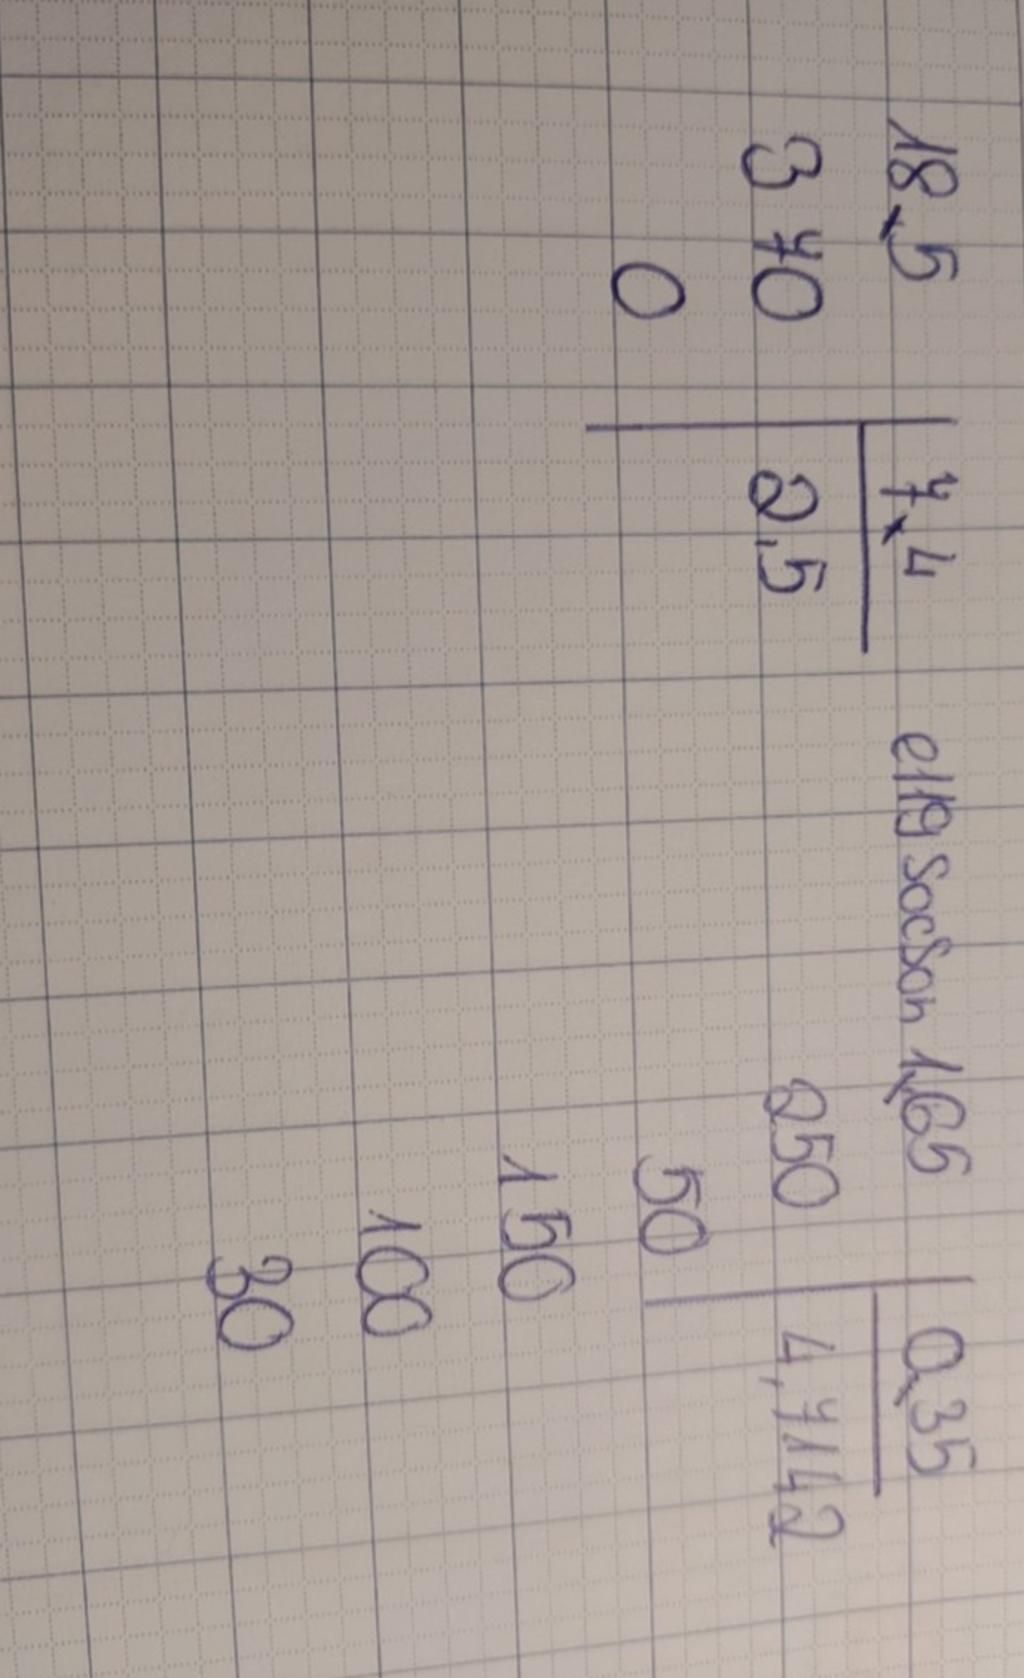 18,5 7,4 ell9socson 1,65 0,35
3 70 2,5 250 4,7142
0 50
150
100
30